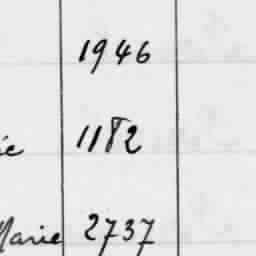 1946
ie 1182
Marie 2737